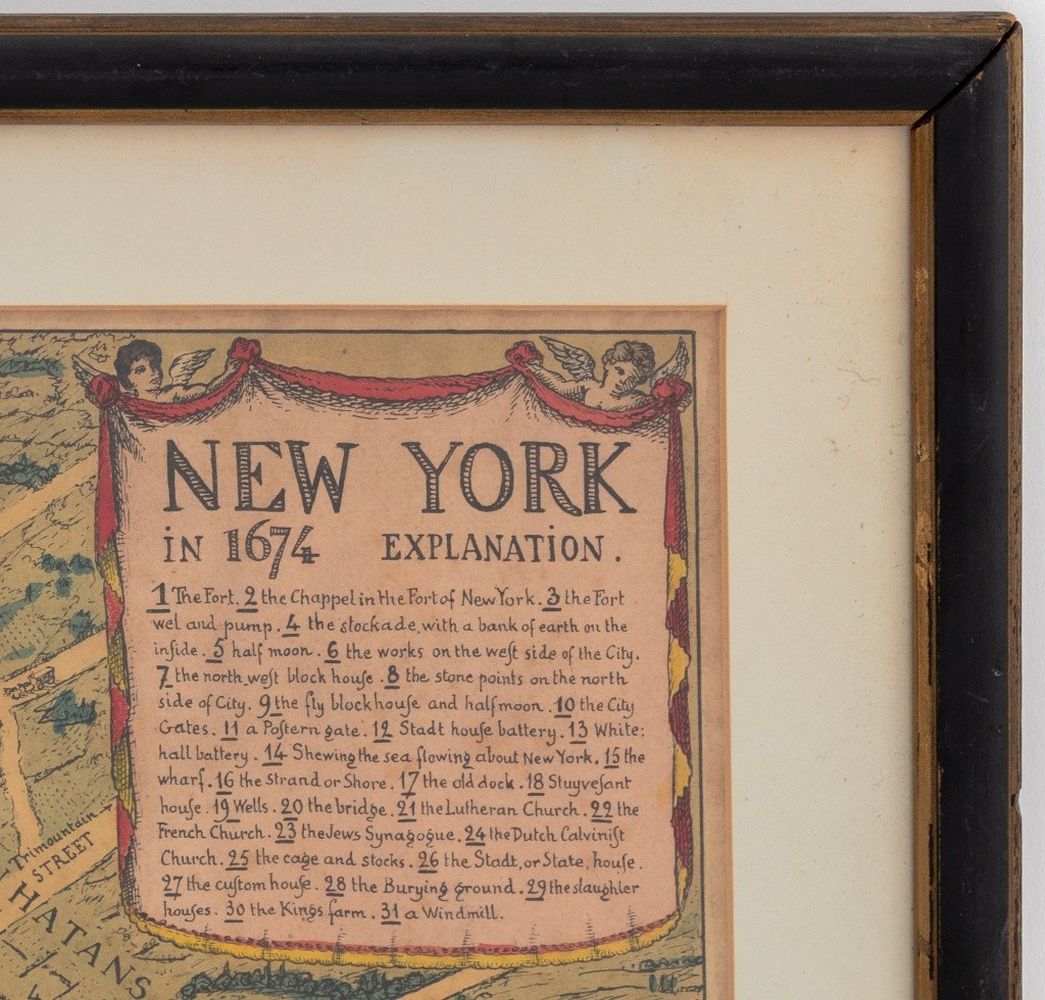 NEW YORK
in 1674 EXPLANATION.
1 The Fort. 2 the Chappel in the Fort of New York. 3 the Fort
wel and pump. 4 the stockade, with a bank of earth on the
inſide. 5 half moon. 6 the works on the weſt side of the City.
7 the north weſt block house. 8 the stone points on the north
side of City. 9 the fly blockhouse and halfmoon. 10 the City
Gates. 11 a Poſtern gate. 12 Stadt houſe battery. 13 White:
hall battery. 14 Shewing the sea flowing about New York. 15 the
wharf. 16 the Strand or Shore. 17 the old dock. 18 Stuyveſant
houſe. 19 Wells. 20 the bridge. 21 the Lutheran Church. 22 the
French Church. 23 the Jews Synagogue. 24 the Dutch Calviniſt
Church. 25 the cage and stocks. 26 the Stadt, or State, houſe.
27 the cuſtom houſe. 28 the Burying ground. 29 the slaughter
houſes. 30 the Kings farm. 31 a Windmill.
Trimountain
STREET
HATANS